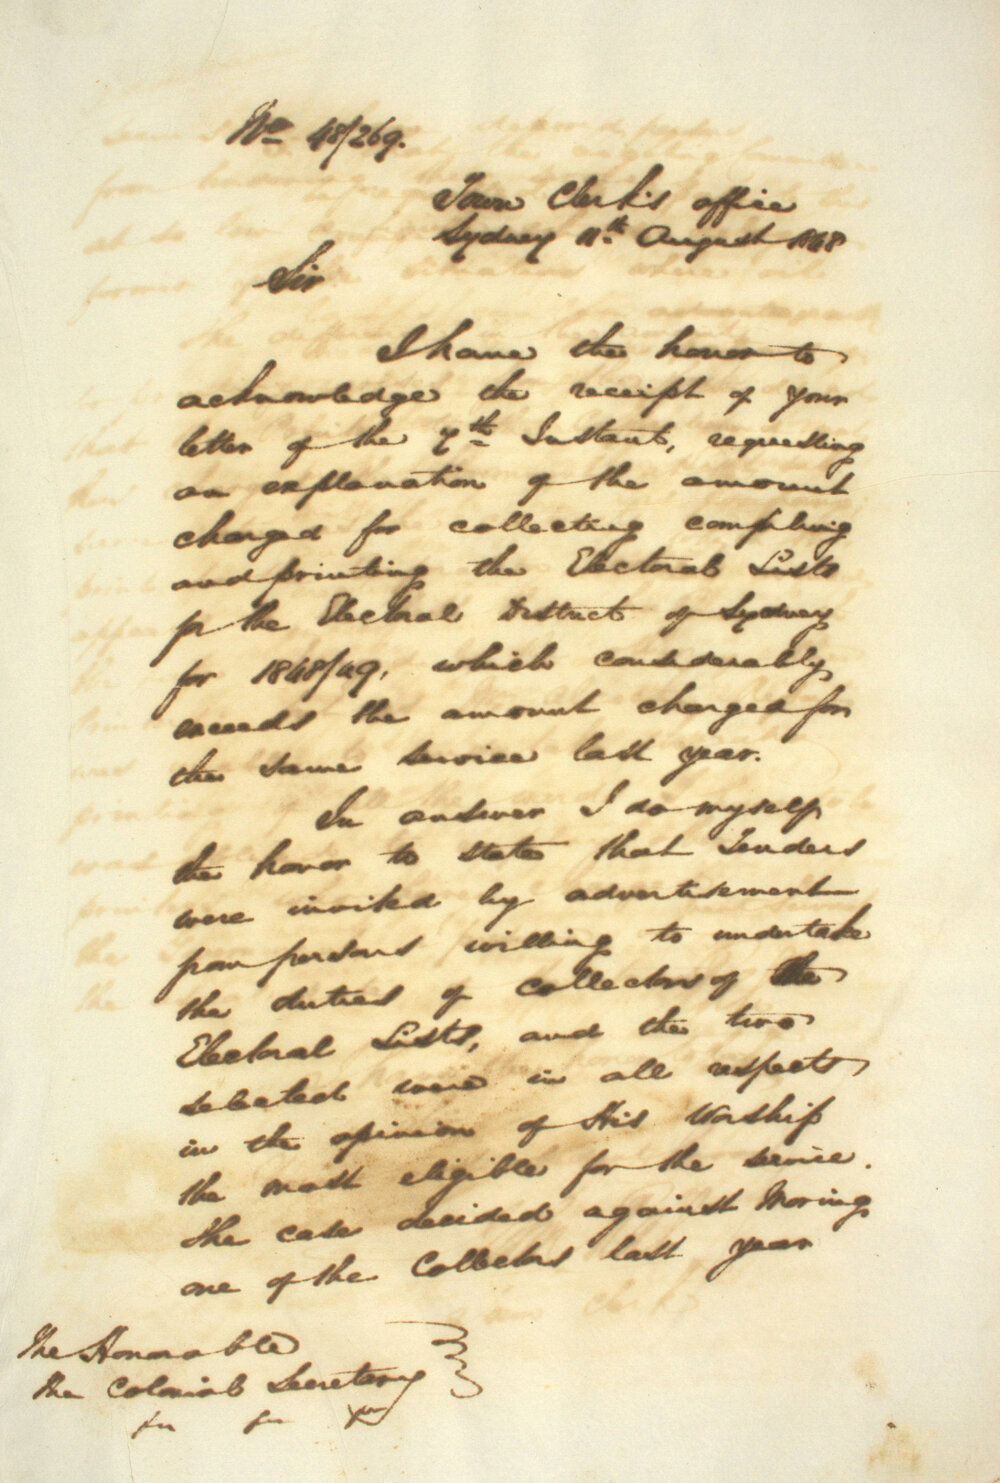 No 48/269.
Town Clerk's office
Sydney 11th August 1848
Sir
I have the honor to
acknowledge the receipt of your
letter of the 7th Instant, requesting
an explanation of the amount
charged for collecting compiling
and printing the Electoral Lists
for the Electoral District of Sydney
for 1848/49, which considerably
exceeds the amount charged for
the same service last year.
In answer I do myself
the honor to state that Tenders
were invited by advertisement
from persons willing to undertake
the duties of collectors of the
Electoral Lists, and the two
selected were in all respects
in the opinion of His Worship
the most eligible for the service.
The case decided against Moring
one of the Collectors last year
The Honorable
the Colonial Secretary